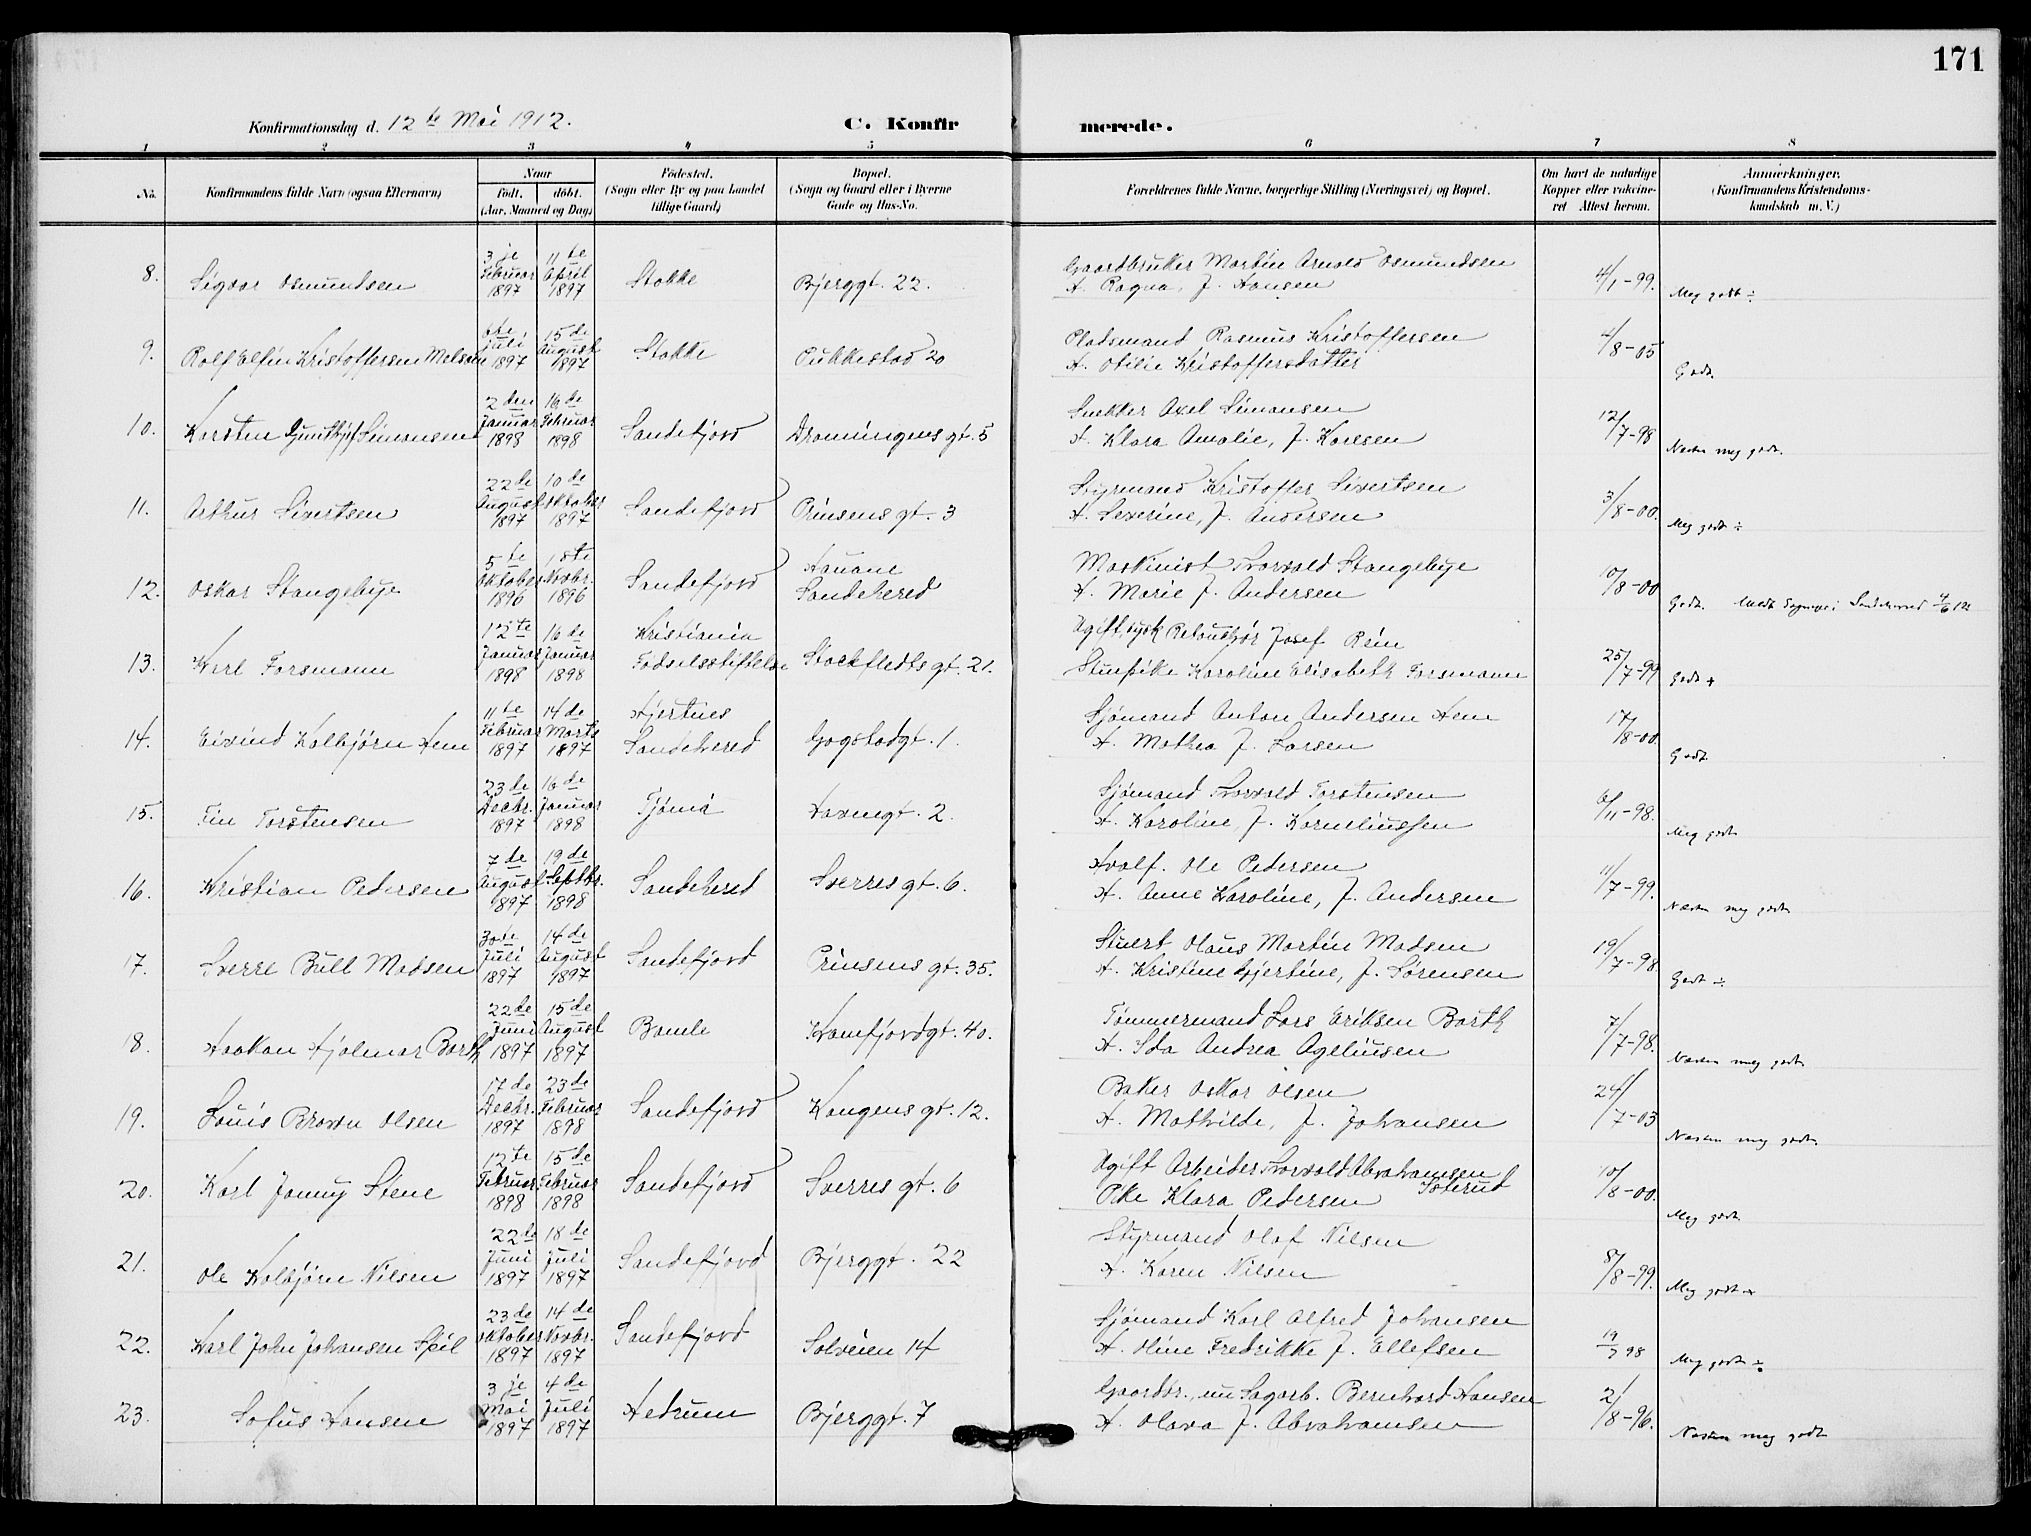 171
Konfirmationsdag d. 12te Mai 1912.
C. Konfirmerede.
1 2 3 4 5 6 7 8
No. Konfirmandens fulde Navn (ogsaa Efternavn) Naar født. døbt. (Aar, Maaned og Dag) Fødested. (Sogn eller By og paa Landet tillige Gaard) Bopæl. (Sogn og Gaard eller i Byerne Gade og Hus-No. Forældrenes fulde Navne, borgerlige Stilling (Næringsvei) og Bopæl. Om havt de naturlige Kopper eller vaksineret Attest herom. Anmærkninger. (Konfirmandens Kristendomskundskab m. V.)
8. Sigvar Osmundsen 3je Februar 1897 11te April 1897 Stokke Bjerggt. 22. Gaardbruker Martin Arnold Osmundsen
H. Ragna, f. Hansen 4/1-99. Meg godt ÷
9. Rolf Elfin Kristoffersen Melsom 6te Juli 1897 15de August 1897 Stokke Pukkestad 20 Pladsmand Rasmus Kristoffersen
H. Otilie Kristoffersdatter 4/8-05 Godt.
10. Karsten Simonsen 2den Januar 1898 16de Februar 1898 Sandefjord Dronningens gt. 5 Snekker Axel Simonsen
H. Klara Amalie, f. Karlsen 12/7-98 Næsten meg godt.
11. Arthur Sivertsen 22de August 1897 10de Oktober 1897 Sandefjord Prinsens gt. 3 Styrmand Kristoffer Sivertsen
H. Severine, f. Andersen 3/8-00. Meg godt ÷
12. Oskar Stangebye 5te Oktober 1896 18te Novbr. 1896 Sandefjord Hauane Sandeherred Maskinist Thorvald Stangebye
H. Marie f. Andersen 10/8-00 Godt. Sandeherred 4/6 12
13. Karl Forsmann 12te Januar 1898 16de Januar 1898 Kristiania Fødselsstiftelse Stockfledts gt. 21. Ugift, tysk Retouchør Josef Rein
Stuepike Karoline Elisabeth Forsmann 25/7-99 Godt +
14. Eivind Kolbjørn Hem 11te Februar 1897 14de Marts 1897 Hjertnes Sandeherred Gogstadgt. 1. Sjømand Anton Andersen Hem
H. Mathea f. Larsen 17/8-00. Godt
15. Fin Torstensen 23de Decbr. 1897 16de Januar 1898 Tjømø Havnegt. 2. Sjømand Thorvald Torstensen
H. Karoline, f. Korneliussen 6/11-98. Meg godt
16. Kristian Pedersen 7de August 1897 19de Septbr. 1898 Sandeherred Sverres gt. 6. Hvalf. Ole Pedersen
H. Anne Karoline, f. Andersen 11/7-99. Næsten meg godt
17. Sverre Bull Madsen 30te Juli 1897 14de August 1897 Sandefjord Prinsens gt. 35. Stuert Olaus Martin Madsen
H. Kristine Gjertine, f. Sørensen 19/7-98. Godt ÷
18. Haakon Hjalmar Barth 22de Juni 1897 15de August 1897 Bamle Kamfjordgt. 40. Tømmermand Lars Eriksen Barth
H. Ida Andrea Agelinsen 7/7-98. Næsten meg godt
19. Louis Brown Olsen 17de Decbr. 1897 23de Februar 1898 Sandefjord Kongens gt. 12. Baker Oskar Olsen
H. Mathilde, f. Johansen 24/7-03 Næsten meg godt
20. Karl Jonny Stene 12te Februar 1898 15de Februar 1898 Sandefjord Sverres gt. 6 Ugift Arbeider Thorvald Abrahamsen Isterud
Pike Klara Pedersen 10/8-00. Meg godt
21. Ole Kolbjørn Nilsen 22de Juni 1897 18de Juli 1897 Sandefjord Bjerggt. 22 Styrmand Olaf Nilsen
H. Karen Nilsen 8/8-99. Meg godt +
22. Karl John Johansen Speil 23de Oktober 1897 14de Novbr. 1897 Sandefjord Solveien 14 Sjømand Karl Alfred Johansen
H. Oline Fredrikke f. Ellefsen 19/7 98 Meg godt ÷
23. Sofus Hansen 3je Mai 1897 4de Juli 1897 Hedrum Bjerggt. 7 Gaardbr., nu Sagarb. Bernhard Hansen
H. Olava f. Abrahamsen 2/8-96. Næsten meg godt